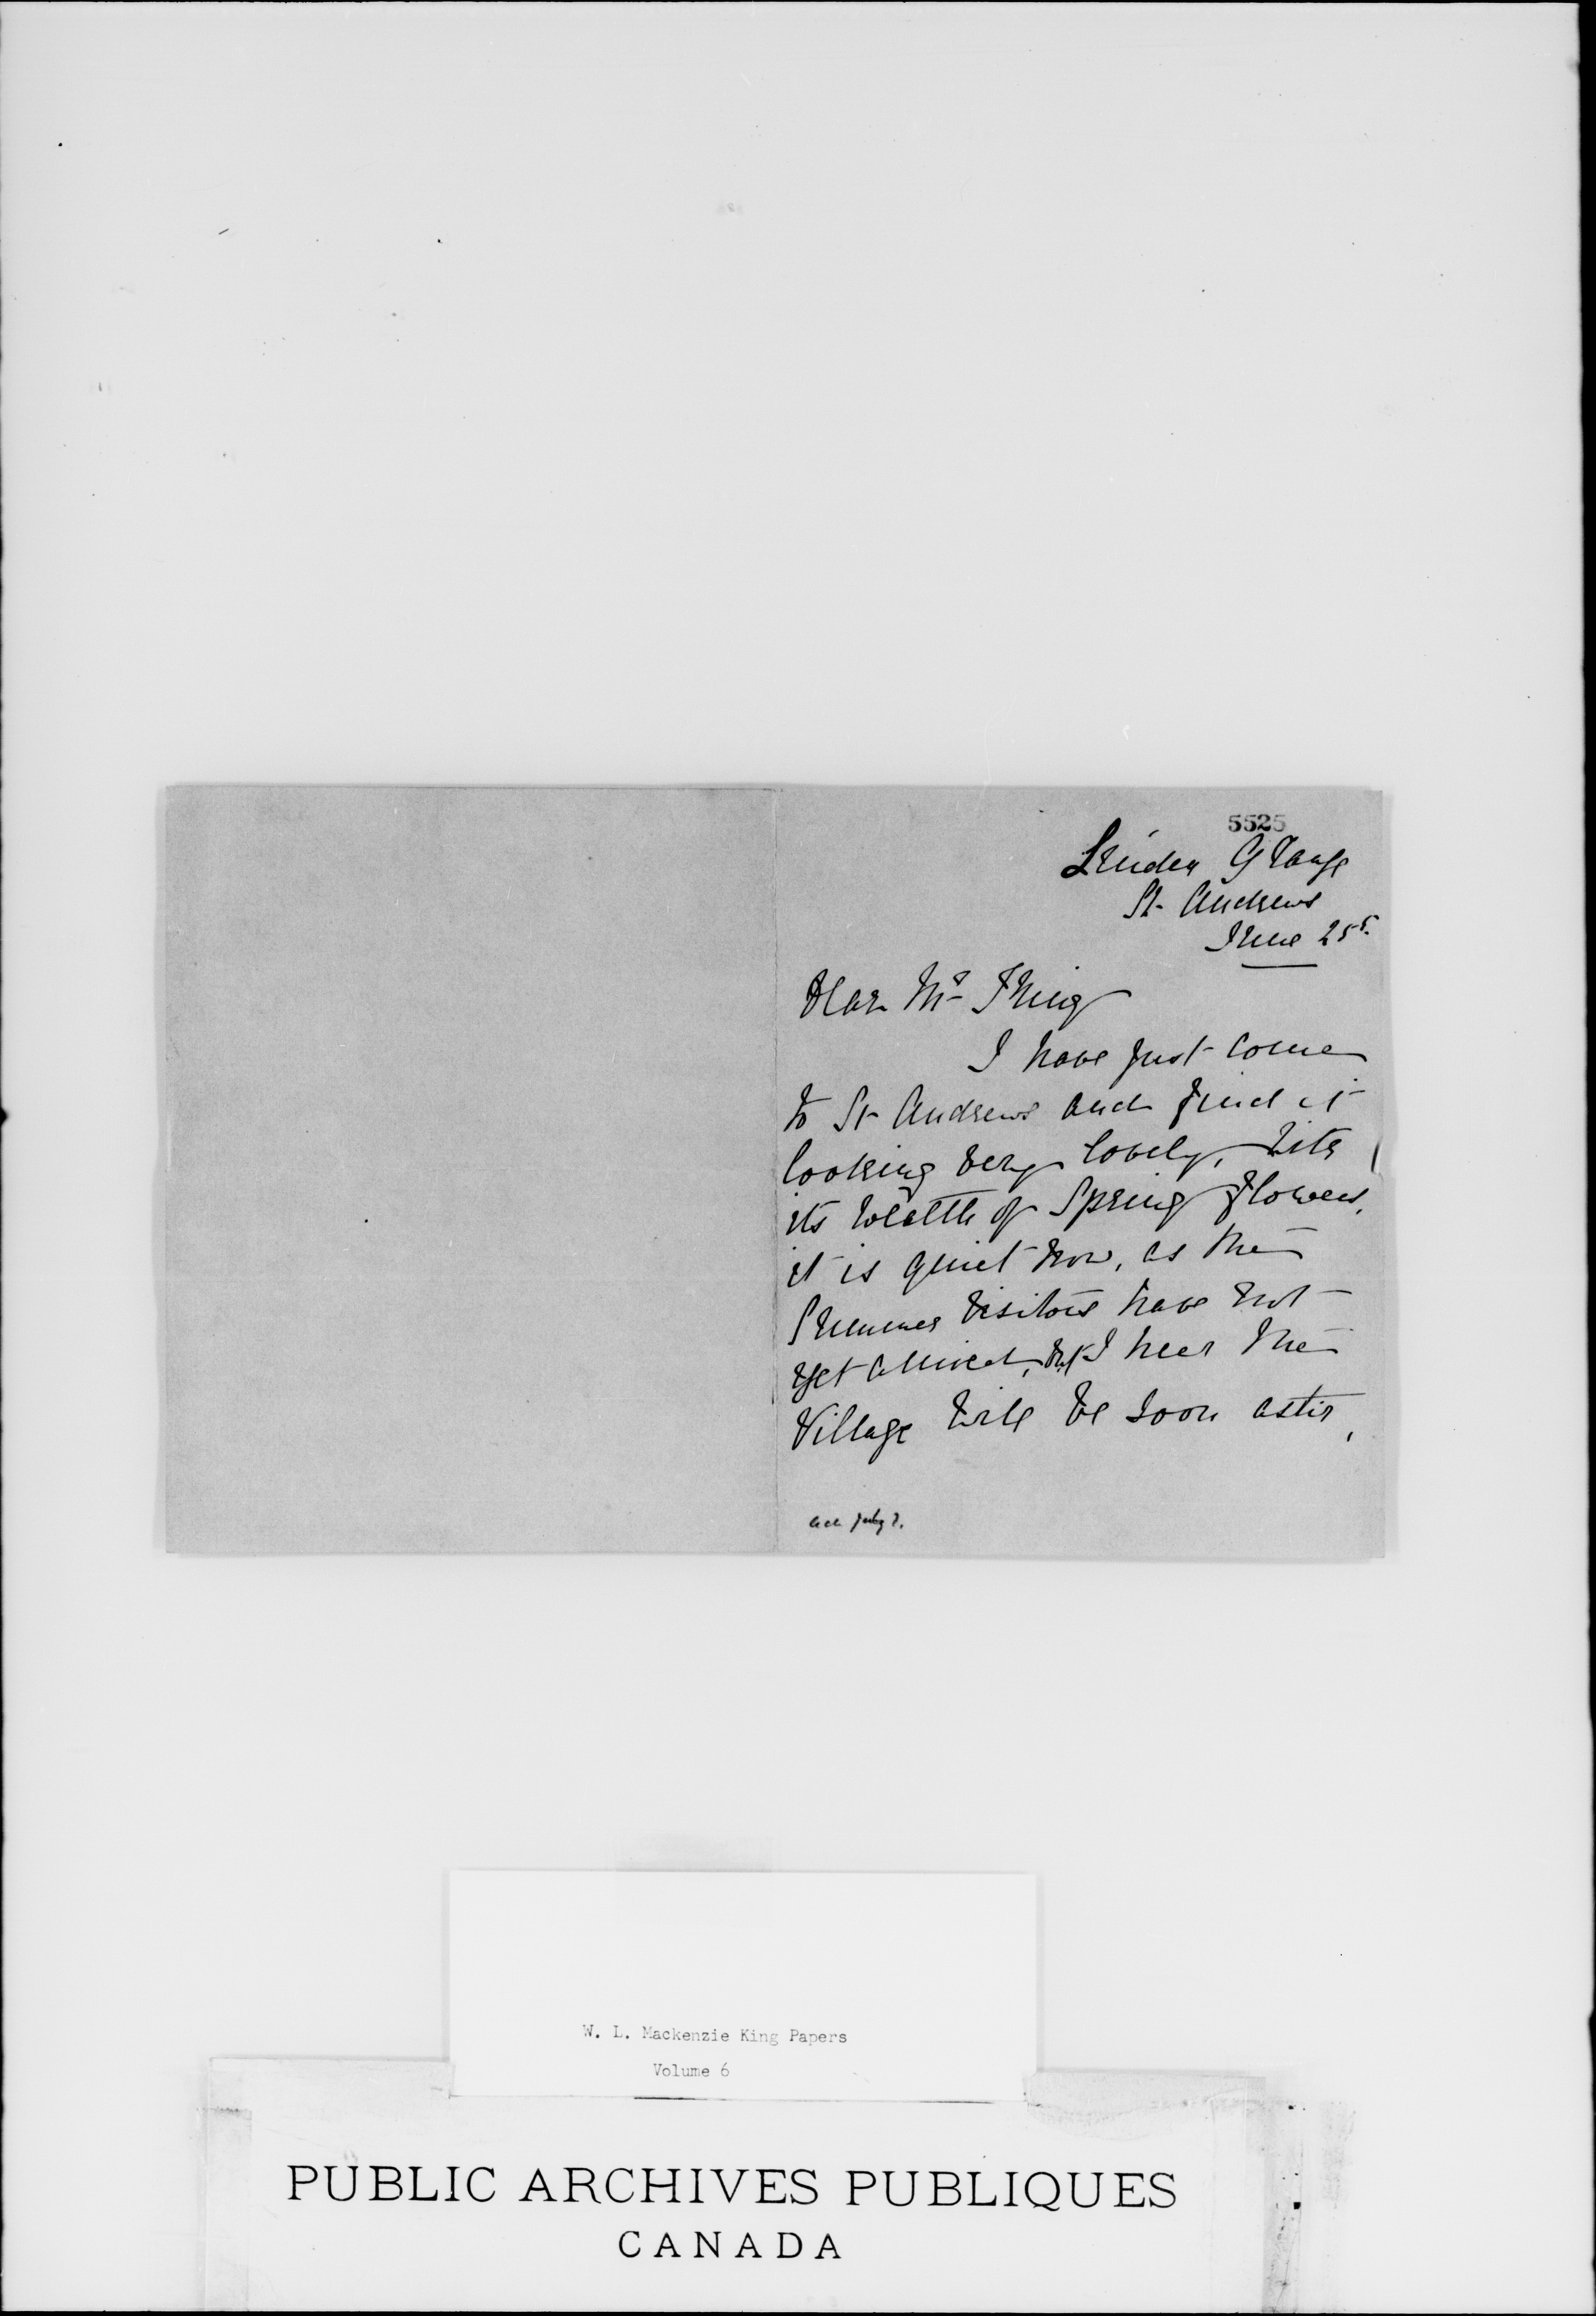 5525
Linden Grange
St. Andrews
June 25th
Dear Mr King
I have just come
to St Andrews and find it
looking very lovely, with
its wealth of Spring flowers,
it is quiet now, as the
Summer visitors have not
yet arrived, but I hear the
Village will be soon astir,
ack July 7.
W. L. Mackenzie King Papers
Volume 6
PUBLIC ARCHIVES PUBLIQUES
CANADA